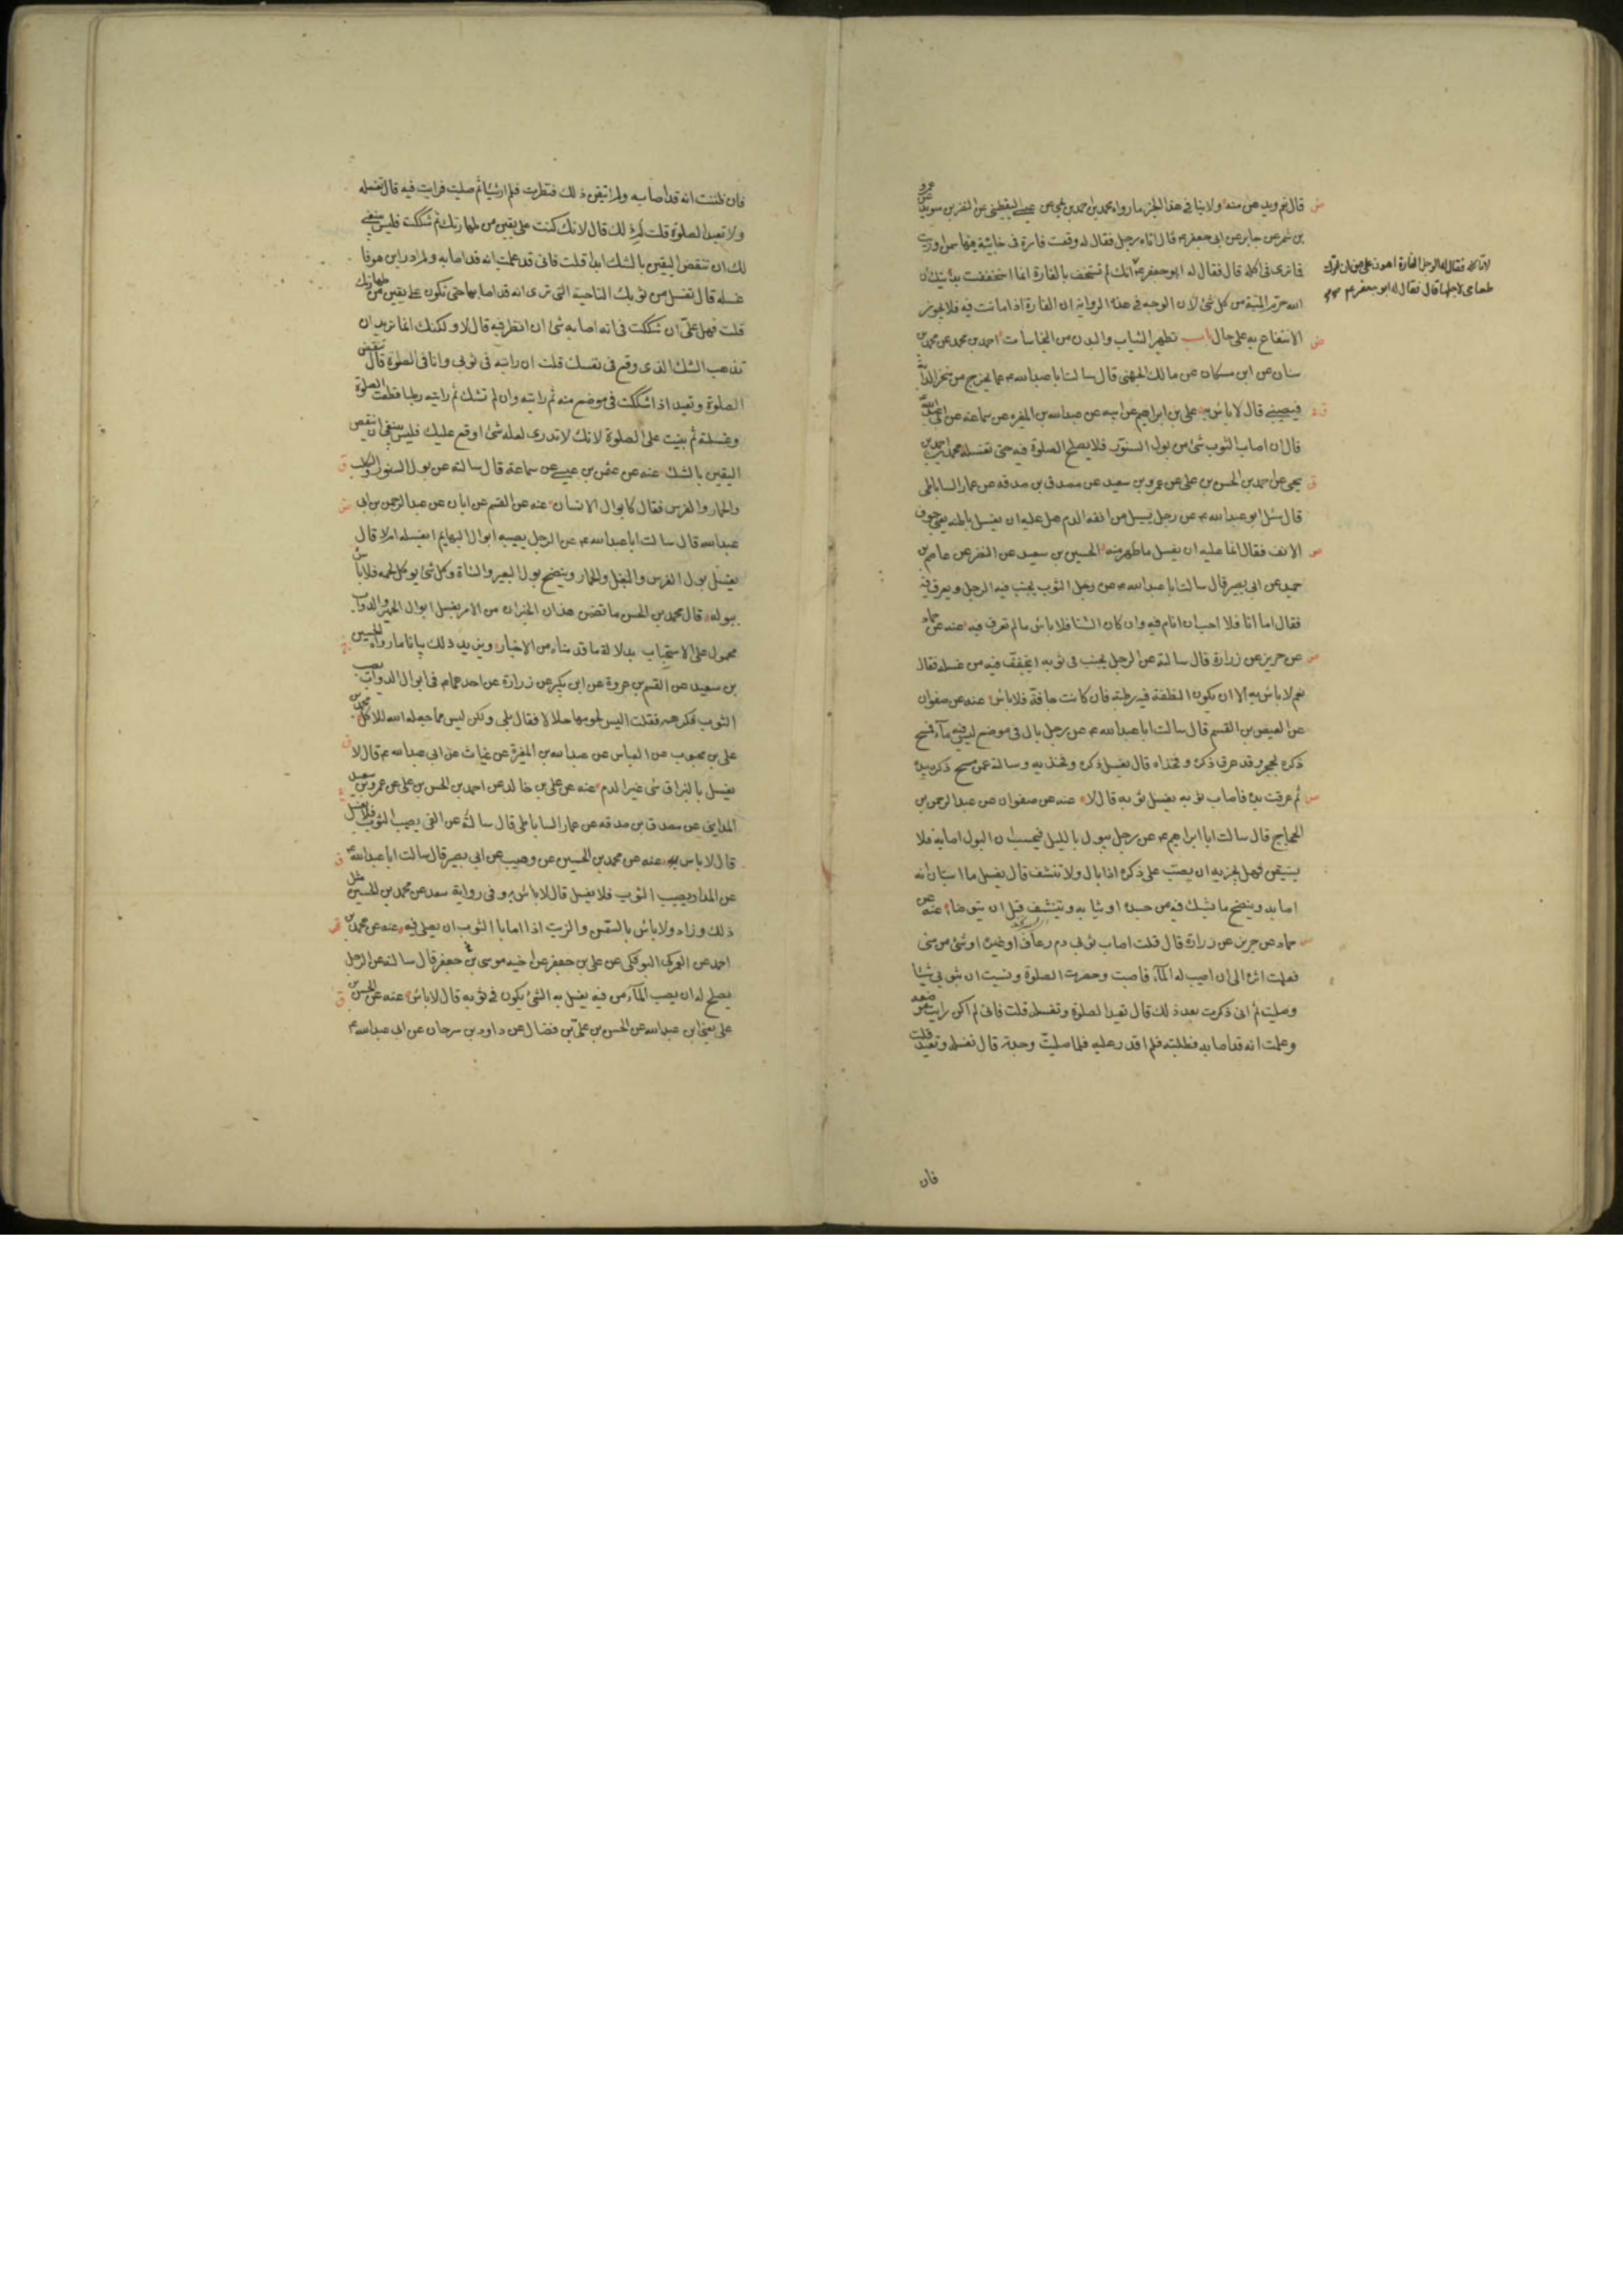 قال نعم ويدهن منه ولا ينافي هذا الخبر ما رواه محمد بن احمد بن يحيى عن عيسى اليقطيني عن النضر بن سويد عن عمرو
بن شمر عن جابر عن ابي جعفر ع قال اتاه رجل فقال له وقعت فارة في خابية فيها سمن او زيت
فما ترى في اكله قال فقال له ابو جعفر ع انك لم تستخف بالفارة انما استخففت بدينك ان
لا تاكله فقال له الرجل الفارة اهون علي من ان اترك
طعامي لاجلها قال فقال له ابو جعفر ع
الله حرم الميتة من كل شئ لان الوجه في هذه الرواية ان الفارة اذا ماتت فيه فلا يجوز
الانتفاع به على حال باب تطهير الثياب والبدن من النجاسات احمد بن محمد عن محمد بن
سنان عن ابن مسكان عن مالك الجهني قال سالت ابا عبد الله ع عما يخرج من منخر الدابة
فيصيبني قال لا باس به علي بن ابراهيم عن ابيه عن عبد الله بن المغيره عن سماعة عن ابي عبد الله
قال ان اصاب الثوب شئ من بول السنور فلا يصلح الصلوة فيه حتى تغسله محمد بن احمد بن
يحيى عن احمد بن الحسن بن علي عن عمرو بن سعيد عن مصدق بن صدقه عن عمار الساباطي
قال سئل ابو عبد الله ع عن رجل يسيل من انفه الدم هل عليه ان يغسل باطنه يعني جوف
الانف فقال انما عليه ان يغسل ما ظهر منه الحسين بن سعيد عن النضر عن عاصم بن
حميد عن ابي بصير قال سالت ابا عبد الله ع عن رجل الثوب يجنب فيه الرجل ويعرق فيه
فقال اما انا فلا احب ان انام فيه وان كان الشتا فلا باس ما لم تعرق فيه عنه عن حماد
عن حريز عن زرارة قال سالته عن الرجل يجنب في ثوبه ايتجفف فيه من غسله فقال
نعم لا باس به الا ان يكون النطفة فيه رطبة فان كانت جافة فلا باس عنه عن صفوان
عن العيص بن القسم قال سالت ابا عبد الله ع عن رجل بال في موضع ليس فيه ماء فمسح
ذكره بحجر وقد عرق ذكره وفخذاه قال يغسل ذكره وفخذيه وسالته عمن مسح ذكره بيده
ثم عرقت يده فاصاب ثوبه يغسل ثوبه قال لا عنه عن صفوان عن عبد الرحمن بن
الحجاج قال سالت ابا ابراهيم ع عن رجل يبول بالليل فيحسب ان البول اصابه فلا
يستيقن فهل يجزيه ان يصب على ذكره اذا بال ولا تنشف قال يغسل ما استبان انه
اصابه وينضح ما يشك فيه من جسده او ثيابه ويتنشف قبل ان يتوضا عنه عن
حماد عن حريز عن زرارة قال قلت اصاب ثوبي دم رعاف او غيره او شئ من مني
فعلمت اثره الى ان اصيب له الماء فاصبت وحضرت الصلوة ونسيت ان بثوبي شيئا
وصليت ثم اني ذكرت بعد ذلك قال تعيد الصلوة وتغسله قلت فاني لم اكن رايت موضعه
وعلمت انه قد اصابه فطلبته فلم اقدر عليه فلما صليت وجدته قال تغسله وتعيد قلت
فان
فان ظننت انه قد اصابه ولم اتيقن ذلك فنظرت فلم ار شيئا ثم صليت فرايت فيه قال تغسله
ولا تعيد الصلوة قلت لم ذلك قال لانك كنت على يقين من طهارتك ثم شككت فليس ينبغي
لك ان تنقض اليقين بالشك ابدا قلت فاني قد علمت انه قد اصابه ولم ادر اين هو فا
غسله قال تغسل من ثوبك الناحية التي ترى انه قد اصابها حتى تكون على يقين من طهارتك
قلت فهل علي ان شككت في انه اصابه شئ ان انظر فيه قال لا ولكنك انما تريد ان
تذهب الشك الذي وقع في نفسك قلت ان رايته في ثوبي وانا في الصلوة قال تنقض
الصلوة وتعيد اذا شككت في موضع منه ثم رايته وان لم تشك ثم رايته رطبا قطعت الصلوة
وغسلته ثم بنيت على الصلوة لانك لا تدري لعله شئ اوقع عليك فليس ينبغي ان تنقض
اليقين بالشك عنه عن عثمن بن عيسى عن سماعة قال سالته عن بول السنور والكلب
والحمار والفرس فقال كابوال الانسان عنه عن القسم عن ابان عن عبد الرحمن بن ابي
عبد الله قال سالت ابا عبد الله ع عن الرجل يصيبه ابوال البهايم ايغسله ام لا قال
يغسل بول الفرس والبغل والحمار وينضح بول البعير والشاة وكل شئ يوكل لحمه فلا باس
ببوله قال محمد بن الحسن ما تضمن هذان الخبران من الامر بغسل ابوال الحمير والدواب
محمول على الاستحباب بدلالة ما قدمناه من الاخبار ويزيد ذلك بيانا ما رواه الحسين
بن سعيد عن القسم بن عروة عن ابن بكير عن زرارة عن احدهما ع في ابوال الدواب يصيب
الثوب فكرهه فقلت اليس لحومها حلالا فقال بلى ولكن ليس مما جعله الله للاكل محمد بن
علي بن محبوب عن العباس عن عبد الله بن المغيرة عن غياث عن ابي عبد الله ع قال لا
يغسل بالبزاق شئ غير الدم عنه عن علي بن خالد عن احمد بن الحسن بن علي عن عمرو بن سعيد
المدايني عن مصدق بن صدقه عن عمار الساباطي قال سالته عن القئ يصيب الثوب فلا يغسل
قال لا باس به عنه عن محمد بن الحسين عن وهيب عن ابي بصير قال سالت ابا عبد الله ع
عن المداد يصيب الثوب فلا يغسل قال لا باس به وفي رواية سعد عن محمد بن الحسين مثل
ذلك وزاد ولا باس بالسمن والزيت اذا اصابا الثوب ان يصلي فيه عنه عن محمد بن
احمد عن العمركي البوفكي عن علي بن جعفر عن اخيه موسى بن جعفر ع قال سالته عن الرجل
يصلح له ان يصب الماء من فيه يغسل به الشئ يكون في ثوبه قال لا باس عنه عن الحسن بن
علي يعني ابن عبد الله عن الحسن بن علي بن فضال عن داود بن سرحان عن ابي عبد الله ع